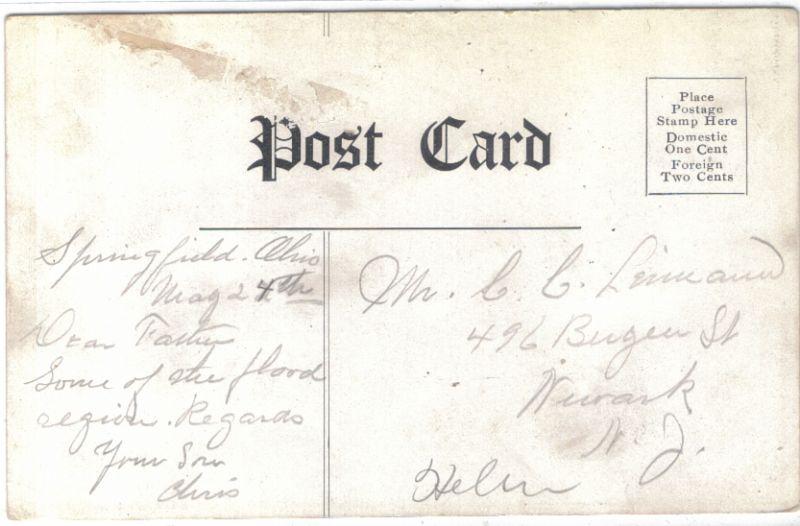 Post Card
Place
Postage
Stamp Here
Domestic
One Cent
Foreign
Two Cents
Springfield. Ohio
May 24th
Dear Father
Some of the flood
region. Regards
Your Son
Chris
Mr. C. C. Leimann
496 Bergen St
Newark
N. J.
Helen